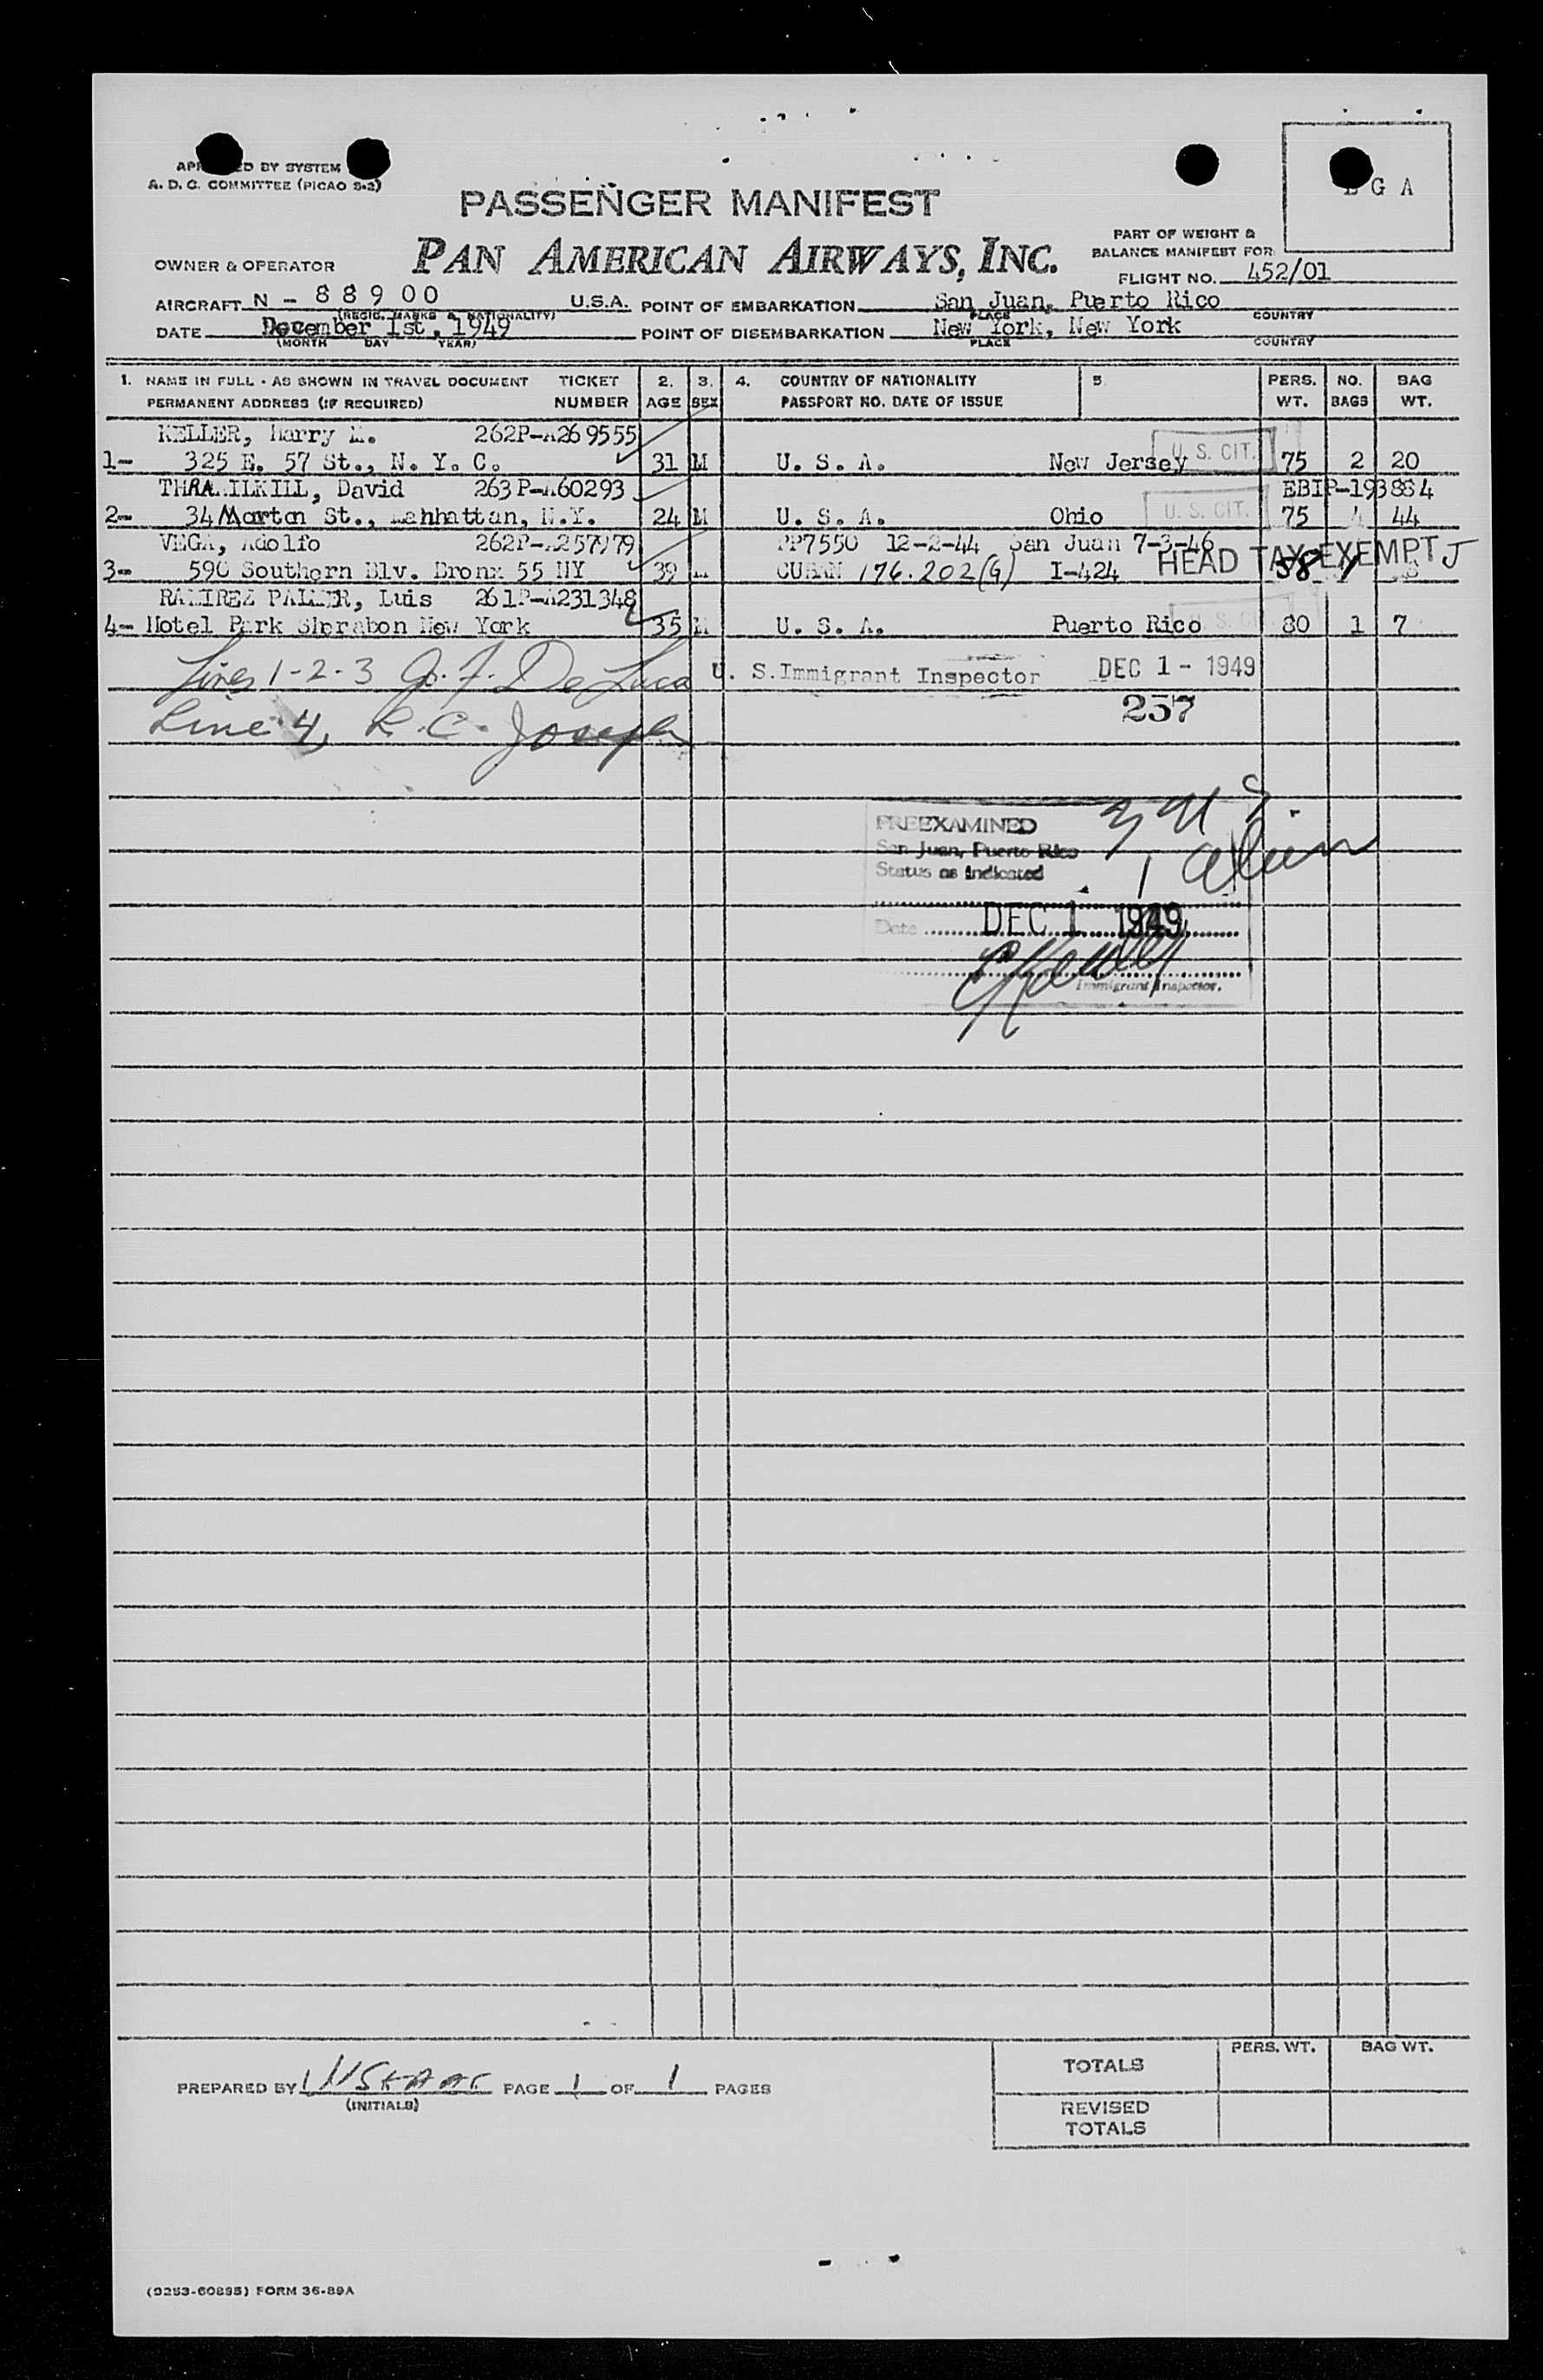 BY SYSTEM
A. D. C. COMMITTEE (PICAO S-2)
G A
PASSENGER MANIFEST
PAN AMERICAN AIRWAYS, INC.
PART OF WEIGHT &
BALANCE MANIFEST FOR
OWNER & OPERATOR
FLIGHT NO. 452/01
AIRCRAFT N - 88900 U.S.A. POINT OF EMBARKATION San Juan, Puerto Rico
(REGIS. MARKS & NATIONALITY) PLACE COUNTRY
DATE December 1st, 1949 POINT OF DISEMBARKATION New York, New York
(MONTH DAY YEAR) PLACE COUNTRY
1. NAME IN FULL - AS SHOWN IN TRAVEL DOCUMENT TICKET 2. 3. 4. COUNTRY OF NATIONALITY 5. PERS. NO. BAG
PERMANENT ADDRESS (IF REQUIRED) NUMBER AGE SEX PASSPORT NO. DATE OF ISSUE WT. BAGS WT.
KELLER, Harry 262P-A269555
1- 325 E. 57 St., N. Y. C. 31 M U. S. A. New Jersey U. S. CIT. 75 2 20
David 263P-A60293 EBIP-193884
2- 34 Morton St., Manhattan, N.Y. 24 M U. S. A. Ohio U. S. CIT. 75 44
VEGA, Adolfo 262P-A257979 PP7550 12-2-44 San Juan 7-3-46
3- 590 Southern Blv. Bronx 55 NY 39 M CUBAN 176.202(G) I-424 HEAD TAX EXEMPT 58 1
RAMIREZ PALMER, Luis 261P-A231348
4- Hotel Park Sherabon New York 35 M U. S. A. Puerto Rico 80 1 7
Lines 1-2-3 G. F. De Luca U. S. Immigrant Inspector DEC 1 - 1949
Line 4, R. C. Joseph 257
PREEXAMINED
San Juan, Puerto Rico
Status as indicated 1 alien
Date DEC 1 1949
Immigrant Inspector.
PREPARED BY PAGE 1 OF 1 PAGES
(INITIALS)
TOTALS PERS. WT. BAG WT.
REVISED
TOTALS
FORM 36-89A